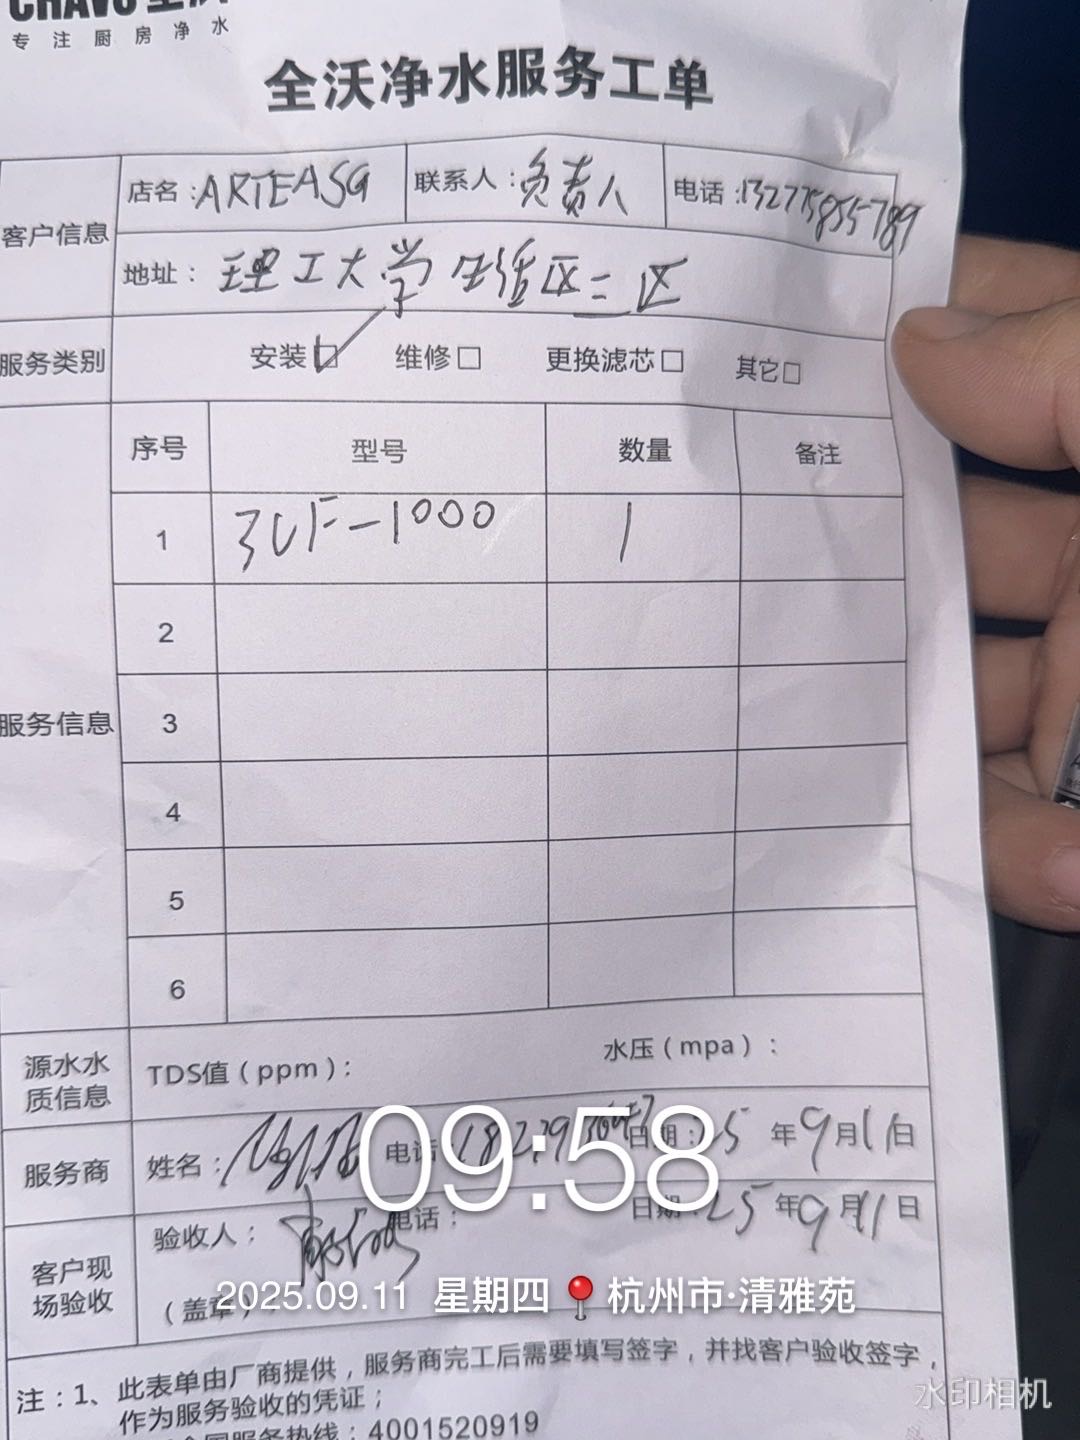 专注厨房净水
全沃净水服务工单
客户信息
店名：ARTEASG 联系人：负责人 电话：132775855789
地址：理工大学生活区三区
服务类别 安装☑ 维修□ 更换滤芯□ 其它□
服务信息
序号 型号 数量 备注
1 3UF-1000 1
2
3
4
5
6
源水水质信息 TDS值（ppm）： 水压（mpa）：
服务商 姓名： 电话： 日期：25年9月11日
09:58
客户现场验收 验收人： 电话： 日期：25年9月11日
（盖章）
2025.09.11 星期四 📍杭州市·清雅苑
注：1、此表单由厂商提供，服务商完工后需要填写签字，并找客户验收签字，
作为服务验收的凭证；
水印相机
全国服务热线：4001520919